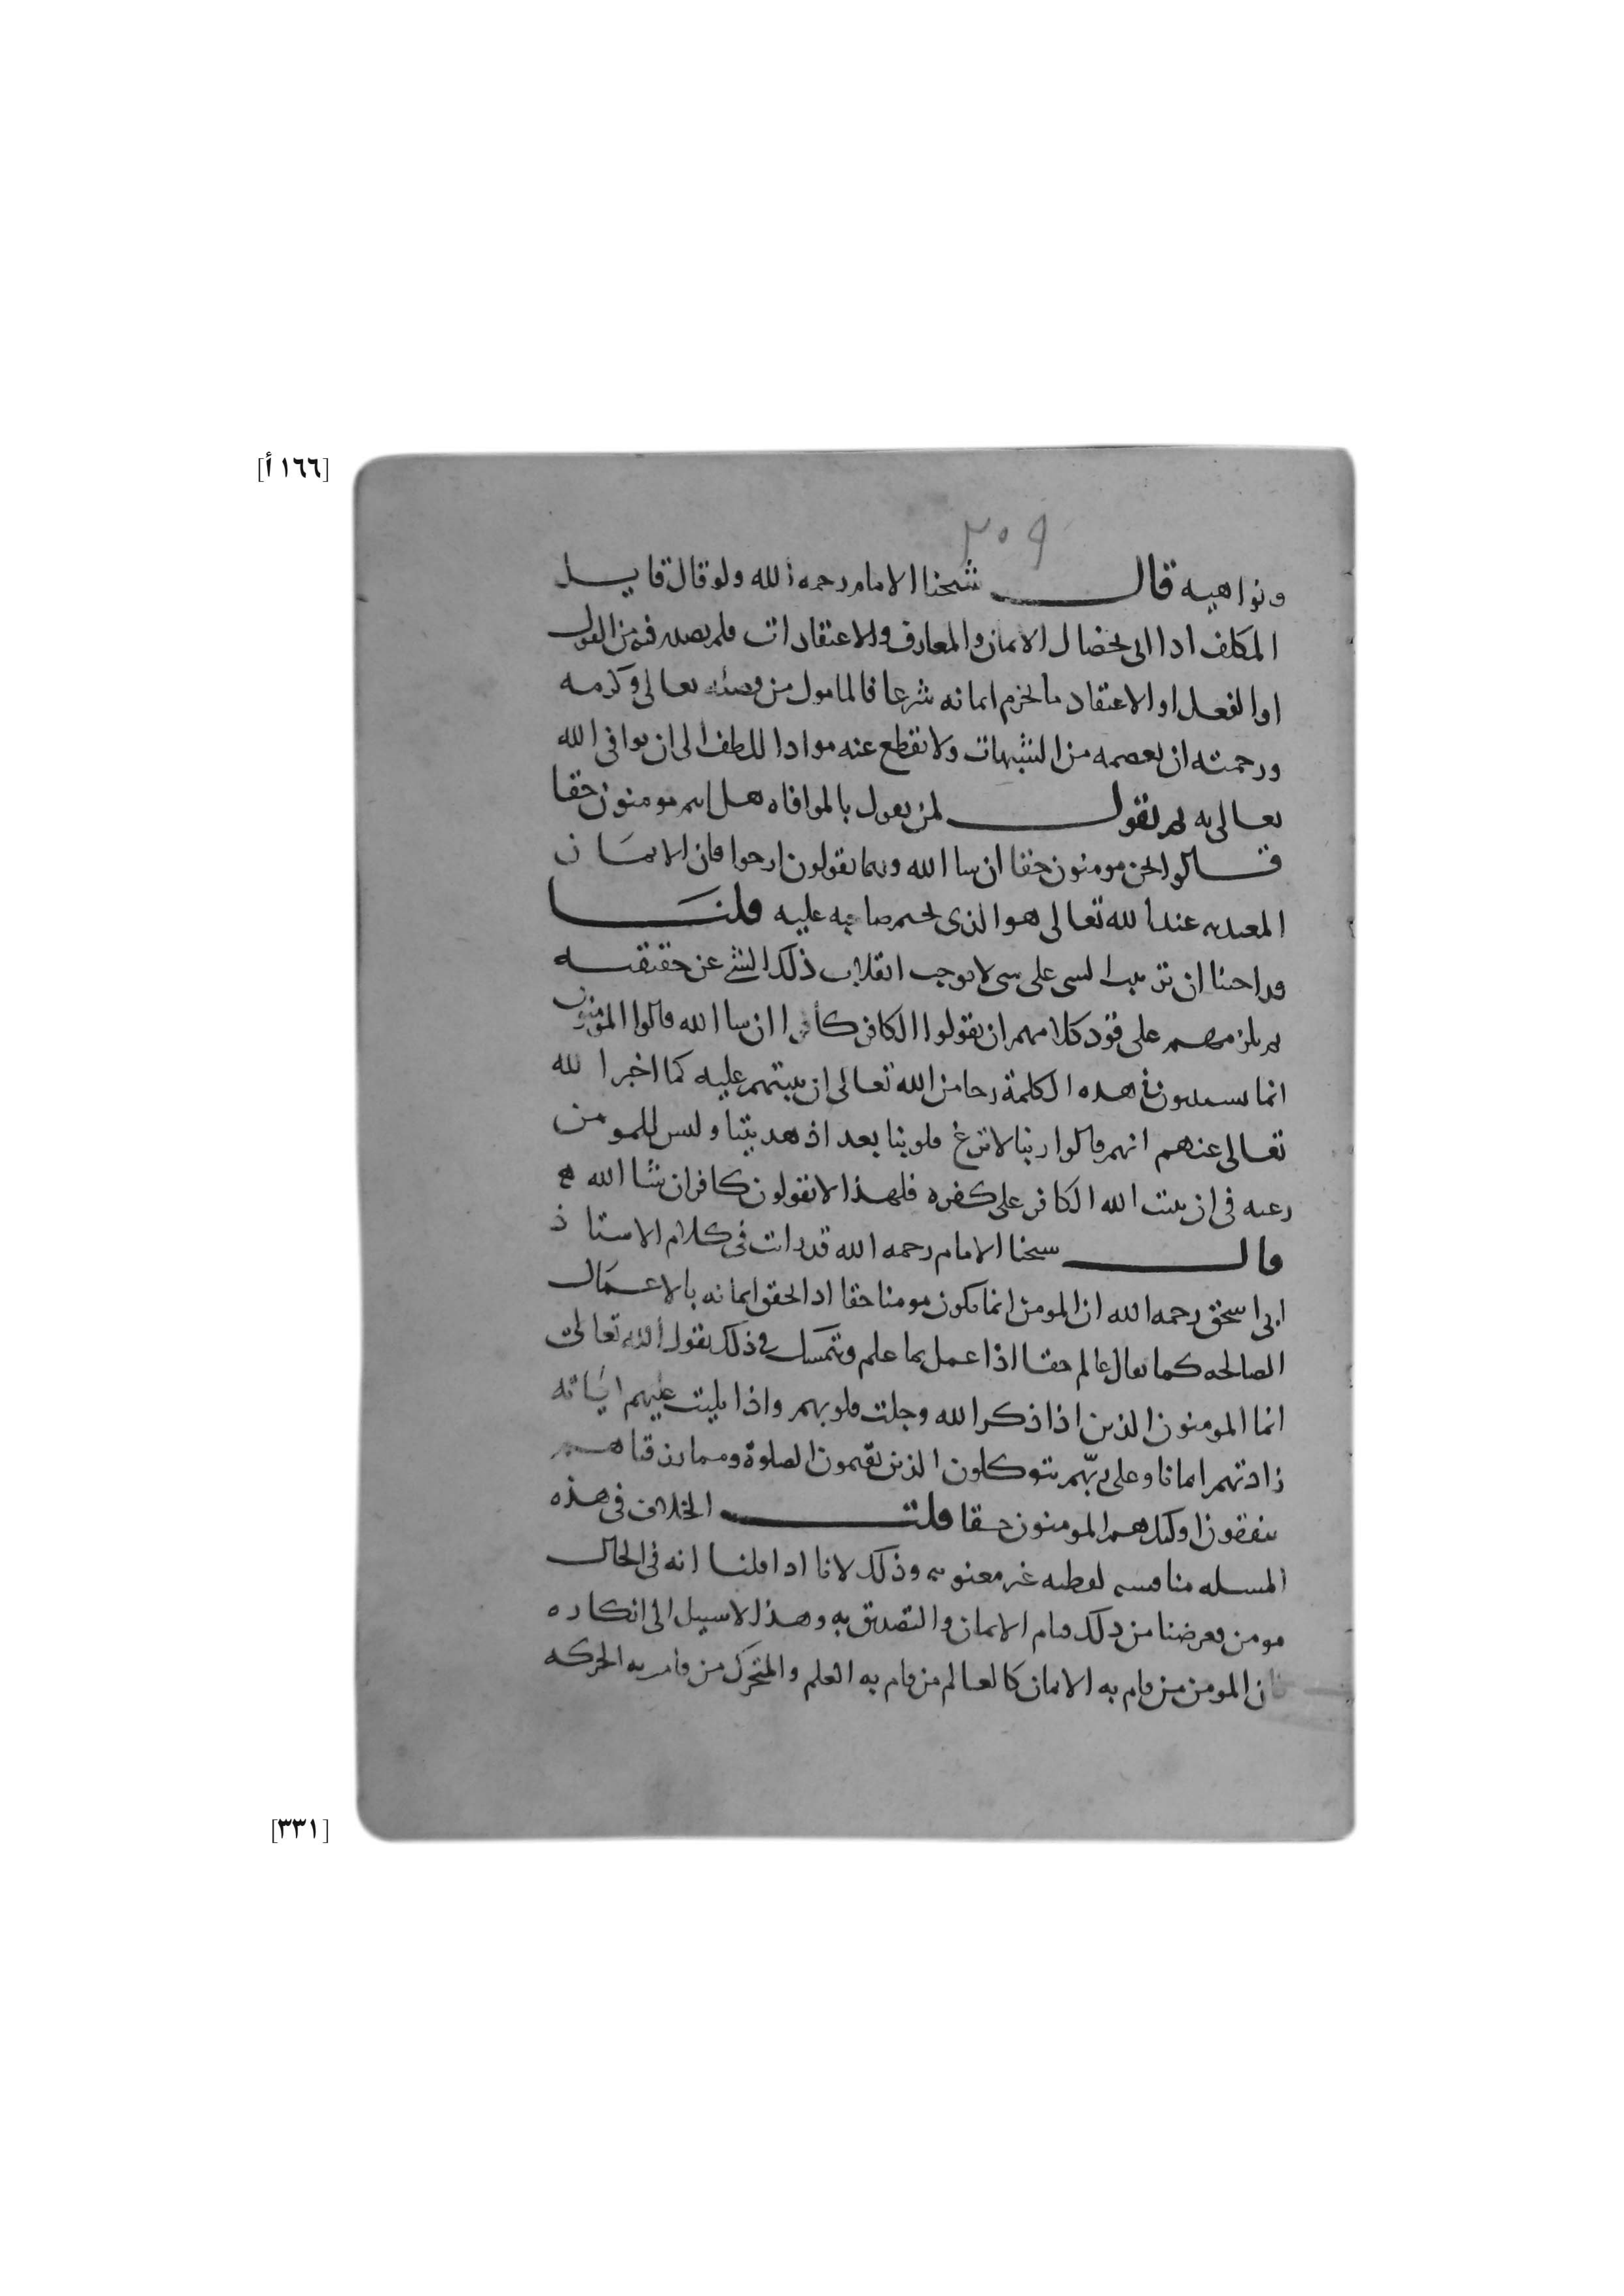 [١٦٦ أ]
٣٠٩
ونواهيه قال شيخنا الامام رحمه الله ولو قال قايل
المكلف اذا اتى بخصال الايمان والمعارف والاعتقادات فلم يصدر منه من القول
او الفعل او الاعتقاد ما يخرم ايمانه شرعا فالمامول من فضله تعالى وكرمه
ورحمته ان يعصمه من الشبهات ولا تقطع عنه مواد اللطف الى ان يوافى الله
تعالى به ثم نقول لمن يقول بالموافاه هل انتم مومنون حقا
قالوا نحن مومنون حقا ان شا الله وربما يقولون ارجوا فان الايمان
المعتد به عند الله تعالى هو الذى يختم صاحبه عليه قلنا
قد اجبنا ان ترتيب الشى على شى لا يوجب انقلاب ذلك الشئ عن حقيقته
ثم يلزمهم على قود كلامهم ان يقولوا الكافر كافرا ان شا الله قالوا المؤمنون
انما يستثنون فى هذه الكلمة رجا من الله تعالى ان يثبتهم عليه كما اخبر الله
تعالى عنهم انهم قالوا ربنا لا تزغ قلوبنا بعد اذ هديتنا وليس للمومن
رغبه فى ان يثبت الله الكافر على كفره فلهذا لا نقولون كافر ان شا الله
قال شيخنا الامام رحمه الله قد رايت فى كلام الاستاذ
ابى اسحق رحمه الله ان المومن انما يكون مومنا حقا اذا حقق ايمانه بالاعمال
الصالحه كما يقال عالم حقا اذا عمل بما علم ويتمسك فى ذلك بقول الله تعالى
انما المومنون الذين اذا ذكر الله وجلت قلوبهم واذا تليت عليهم اياته
زادتهم ايمانا وعلى ربهم يتوكلون الذين يقيمون الصلوة ومما رزقناهم
ينفقون اوليك هم المومنون حقا قلت الخلاف فى هذه
المسله مناقشه لفظيه غير معنويه وذلك لانا اذا قلنا انه فى الحال
مومن فغرضنا من ذلك قيام الايمان والتصديق به وهذا لا سبيل الى انكاره
فان المومن من قام به الايمان كالعالم من قام به العلم والمتحرك من قام به الحركه
[٣٣١]